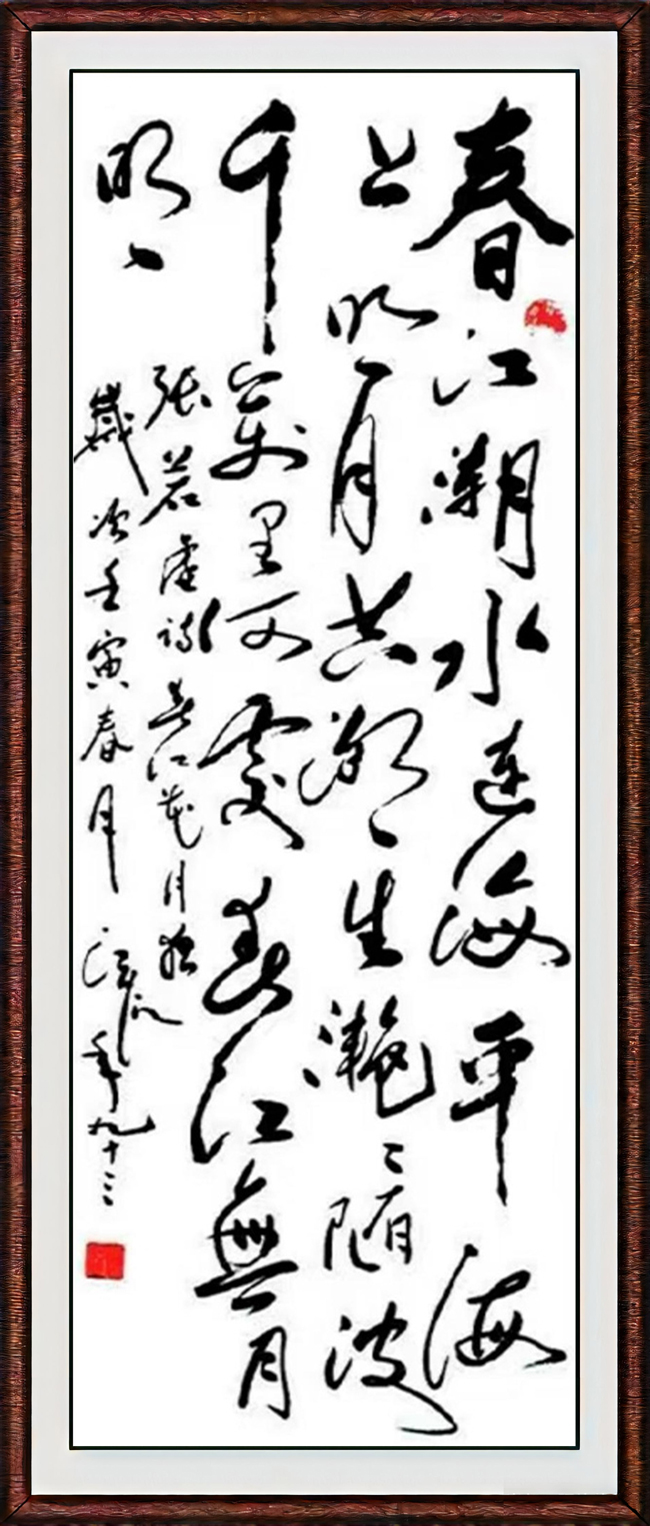 春江潮水連海平海
上明月共潮生灩灩隨波
千萬里何處春江無月
明
張若虛詩春江花月夜
歲次壬寅春月 年九十三